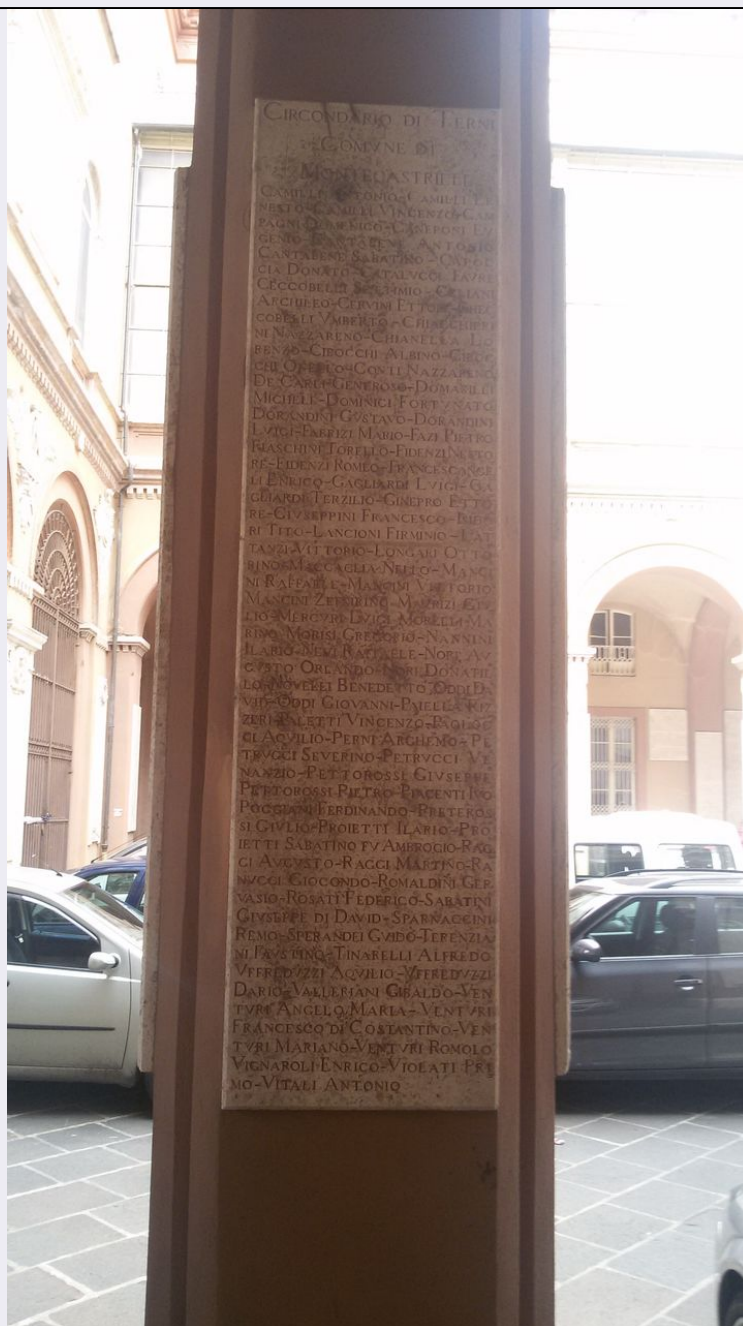 CIRCONDARIO DI TERNI
COMVNE DI
MONTECASTRILLI
CAMILLI ANTONIO-CAMILLI ER
NESTO-CAMILLI VINCENZO-CAM
PAGNI DOMENICO-CANEPONI EV
GENIO-CANTABENE ANTONIO
CANTABENE SABATINO-
CIA DONATO-CATALVCCI
CECCOBELLI SETTIMIO-CELIANI
ARCHILEO-CERVINI ETTORE-
COBELLI VMBERTO-CHIACCHIERI
NI NAZZARENO-CHIANELLA LO
RENZO-CIROCCHI ALBINO-CIROC
CHI ONELIO-CONTI NAZZARENO
DE CARLI GENEROSO-DOMABILLI
MICHELE-DOMINICI FORTVNATO
DORANDINI GVSTAVO-DORANDINI
LVIGI-FABRIZI MARIO-FAZI PIETRO
FIASCHINI TORELLO-FIDENZI NESTO
RE-FIDENZI ROMEO-FRANCESCANGE
LI ENRICO-GAGLIARDI LVIGI-GA
GLIARDI TERZILIO-GINEPRO ETTO
RE-GIVSEPPINI FRANCESCO-
RI TITO-LANCIONI FIRMINIO-LAT
TANZI VITTORIO-LONGARI OTTO
RINO-MACCAGLIA NELLO-MANCI
NI RAFFAELE-MANCINI VITTORIO
MANCINI ZEFFIRINO-MAVRIZI GIV
LIO-MERCVRI LVIGI-MORELLI MA
RINO-MORISI GREGORIO-NANNINI
ILARIO-NEVI RAFFAELE-NORI AV
GVSTO ORLANDO-NORI DONATIL
LO-NOVELLI BENEDETTO-ODDI DA
VID-ODDI GIOVANNI-PAIELLA RIZ
ZERI-PALETTI VINCENZO-PAOLOC
CI AQVILIO-PERNI ARCHEMO-PE
TRVCCI SEVERINO-PETRVCCI VE
NANZIO-PETTOROSSI GIVSEPPE
PETTOROSSI PIETRO-PIACENTI IVO
POGGIANI FERDINANDO-PRETEROS
SI GIVLIO-PROIETTI ILARIO-PRO
IETTI SABATINO FV AMBROGIO-RAG
GI AVGVSTO-RAGGI MARTINO-RA
NVCCI GIOCONDO-ROMALDINI GER
VASIO-ROSATI FEDERICO-SABATINI
GIVSEPPE DI DAVID-SPARNACCINI
REMO-SPERANDEI GVIDO-TERENZIA
NI FAVSTINO-TINARELLI ALFREDO
VFFREDVZZI AQVILIO-VFFREDVZZI
DARIO-VALLERIANI GIBALDO-VEN
TVRI ANGELO MARIA-VENTVRI
FRANCESCO DI COSTANTINO-VEN
TVRI MARIANO-VENTVRI ROMOLO
VIGNAROLI ENRICO-VIOLATI PRI
MO-VITALI ANTONIO